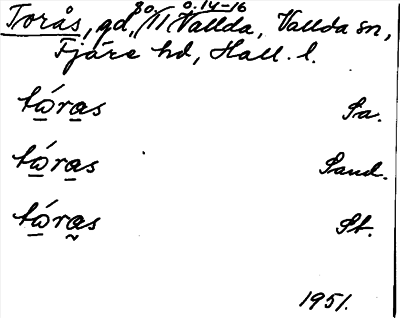 Torås, gd, 80/11 Vallda 0.14-16, Vallda sn,
Fjäre hd, Hall. l.
tó̱ra̱s Sa.
tó̱ra̱s Sand.
tó̱ra̰s St.
1951.